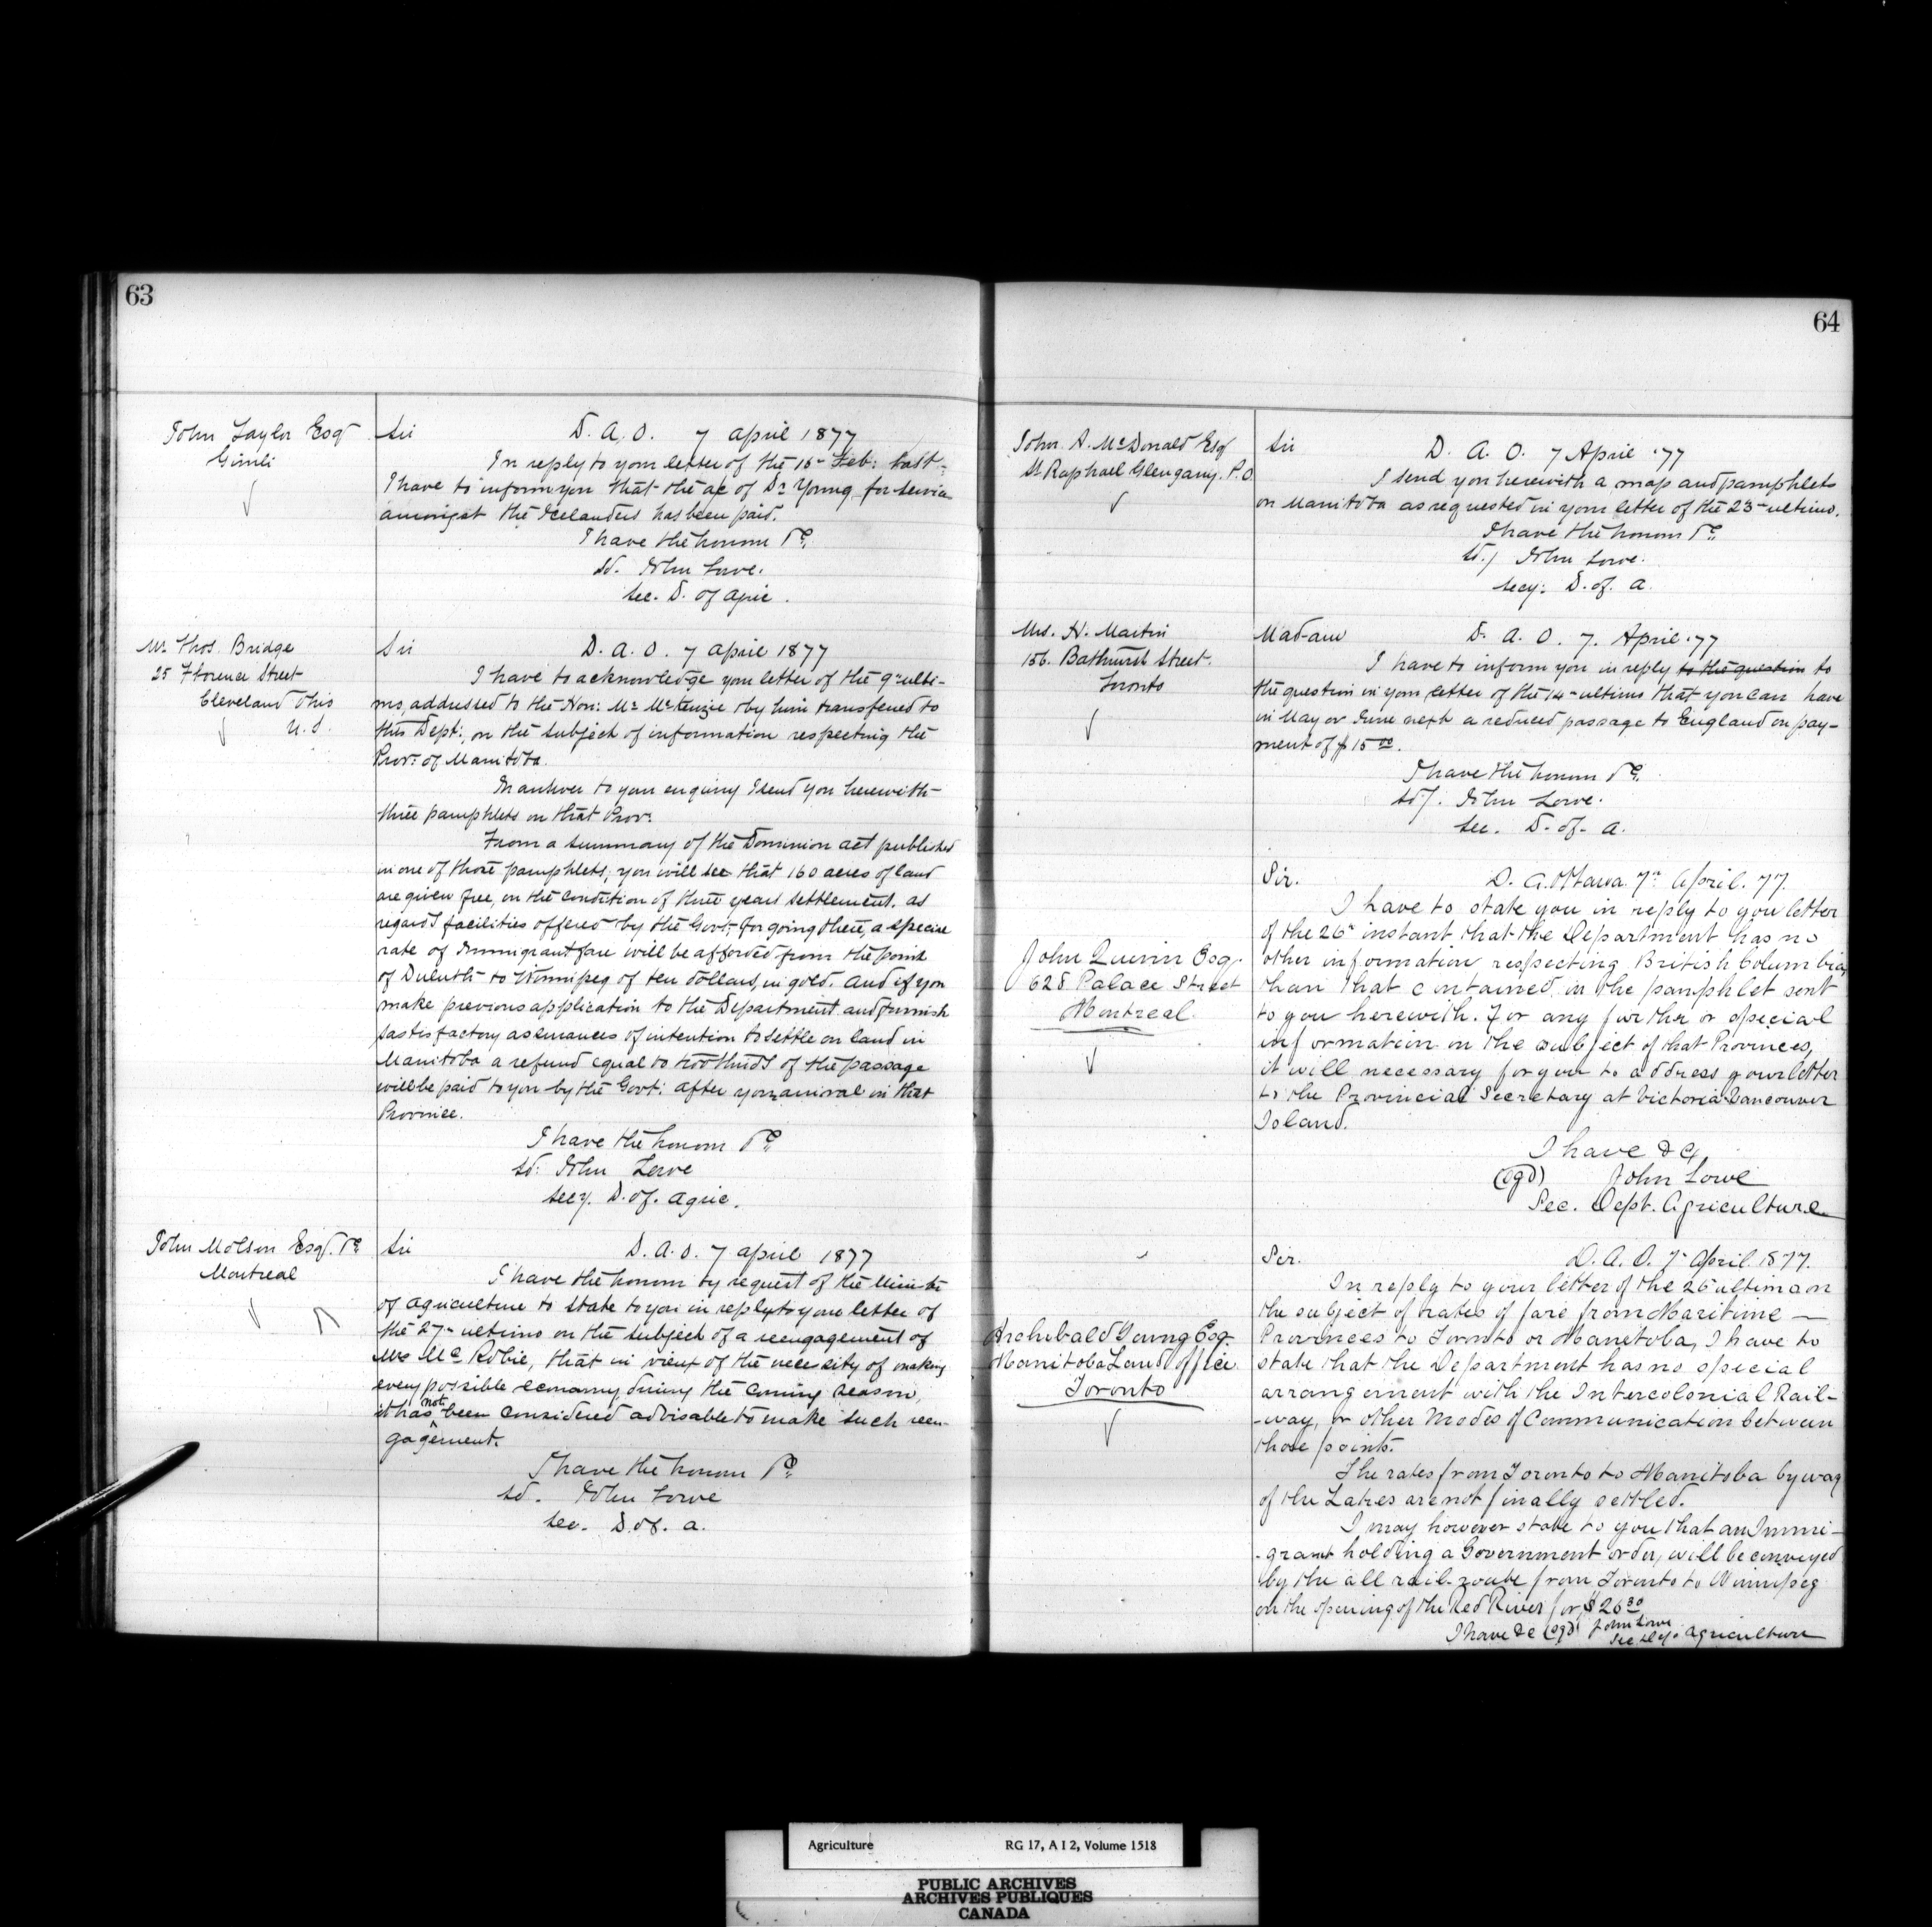 63
John Taylor Esqr
Gimli
Sir
D. A. O. 7 April 1877
In reply to your letter of the 15th Feb: last
I have to inform you that the a/c of Dr Young for service
amongst the Icelanders has been paid.
I have the honour &c.
Sd. John Lowe.
Sec. D. of Agric.
Mr Thos. Bridge
25 Florence Street
Cleveland Ohio
U.S.
Sir
D. A. O. 7 April 1877
I have to acknowledge your letter of the 9th ulti-
mo, addressed to the Hon: Mr McKenzie & by him transferred to
this Dept:, on the subject of information respecting the
Prov: of Manitoba.
In answer to your enquiry I send you herewith
three pamphlets on that Prov:
From a summary of the Dominion act published
in one of those pamphlets, you will see that 160 acres of land
are given free, on the condition of three years settlement. As
regards facilities offered by the Govt: for going there, a special
rate of Immigrant fare will be afforded from the point
of Duluth to Winnipeg of ten dollars, in gold. And if you
make previous application to the Department and furnish
sastisfactory assurances of intention to settle on land in
Manitoba a refund equal to two thirds of the passage
will be paid to you by the Govt: after your arrival in that
Province.
I have the honour &c.
Sd: John Lowe
Secy. D. of. Agric.
John Molson Esqr. &c
Montreal
Sir
D. A. O. 7 April 1877
I have the honour by request of the Ministr
of Agriculture to state to you in reply to your letter of
the 27th ultimo on the subject of a reengagement of
Mrs McRobie, that in view of the necessity of making
every possible economy during the coming season,
it has not been considered advisable to make such reen-
gagement.
I have the honour &c.
Sd. John Lowe
Sec. D. of. A.
64
John A. McDonald Esq
St Raphael Glengarry. P.O.
Sir
D. A. O. 7 April '77
I send you herewith a map and pamphlets
on Manitoba as requested in your letter of the 23rd ultimo.
I have the honour &c.
Sd./ John Lowe.
Secy: D. of. A.
Mrs. H. Martin
156. Bathurst Street.
Toronto
Madam
D. A. O. 7. April '77
I have to inform you in reply to the question to
the question in your letter of the 14th ultimo that you can have
in May or June next a reduced passage to England on pay-
ment of $15.00.
I have the honour &c.
Sd/. John Lowe.
Sec. D. of. A.
John Quinn Esq.
628 Palace Street
Montreal.
Sir.
D. A. Ottawa 7th April. 77.
I have to state you in reply to you letter
of the 26th instant that the Department has no
other information respecting British Columbia,
than that contained in the pamphlet sent
to you herewith. For any further or special
information on the subject of that Provinces,
it will necessary for you to address your letter
to the Provincial Secretary at Victoria Vancouver
Island.
I have &c
(sgd) John Lowe
Sec. Dept. Agriculture
Archibald Young Esq.
Manitoba Land Office
Toronto
Sir.
D. A. O. 7th April 1877.
In reply to your letter of the 26th ultimo on
the subject of rates of fare from Maritime —
Provinces to Toronto or Manitoba, I have to
state that the Department has no special
arrangement with the Intercolonial Rail-
-way, or other Modes of Communication between
those points.
The rates from Toronto to Manitoba by way
of the Lakes are not finally settled.
I may however state to you that an Immi-
-grant holding a Government order, will be conveyed
by the all rail-route from Toronto to Winnipeg
on the opening of the Red River for $26.30
I have &c (sgd) John Lowe
Sec Dept. Agriculture
Agriculture RG 17, A I 2, Volume 1518
PUBLIC ARCHIVES
ARCHIVES PUBLIQUES
CANADA